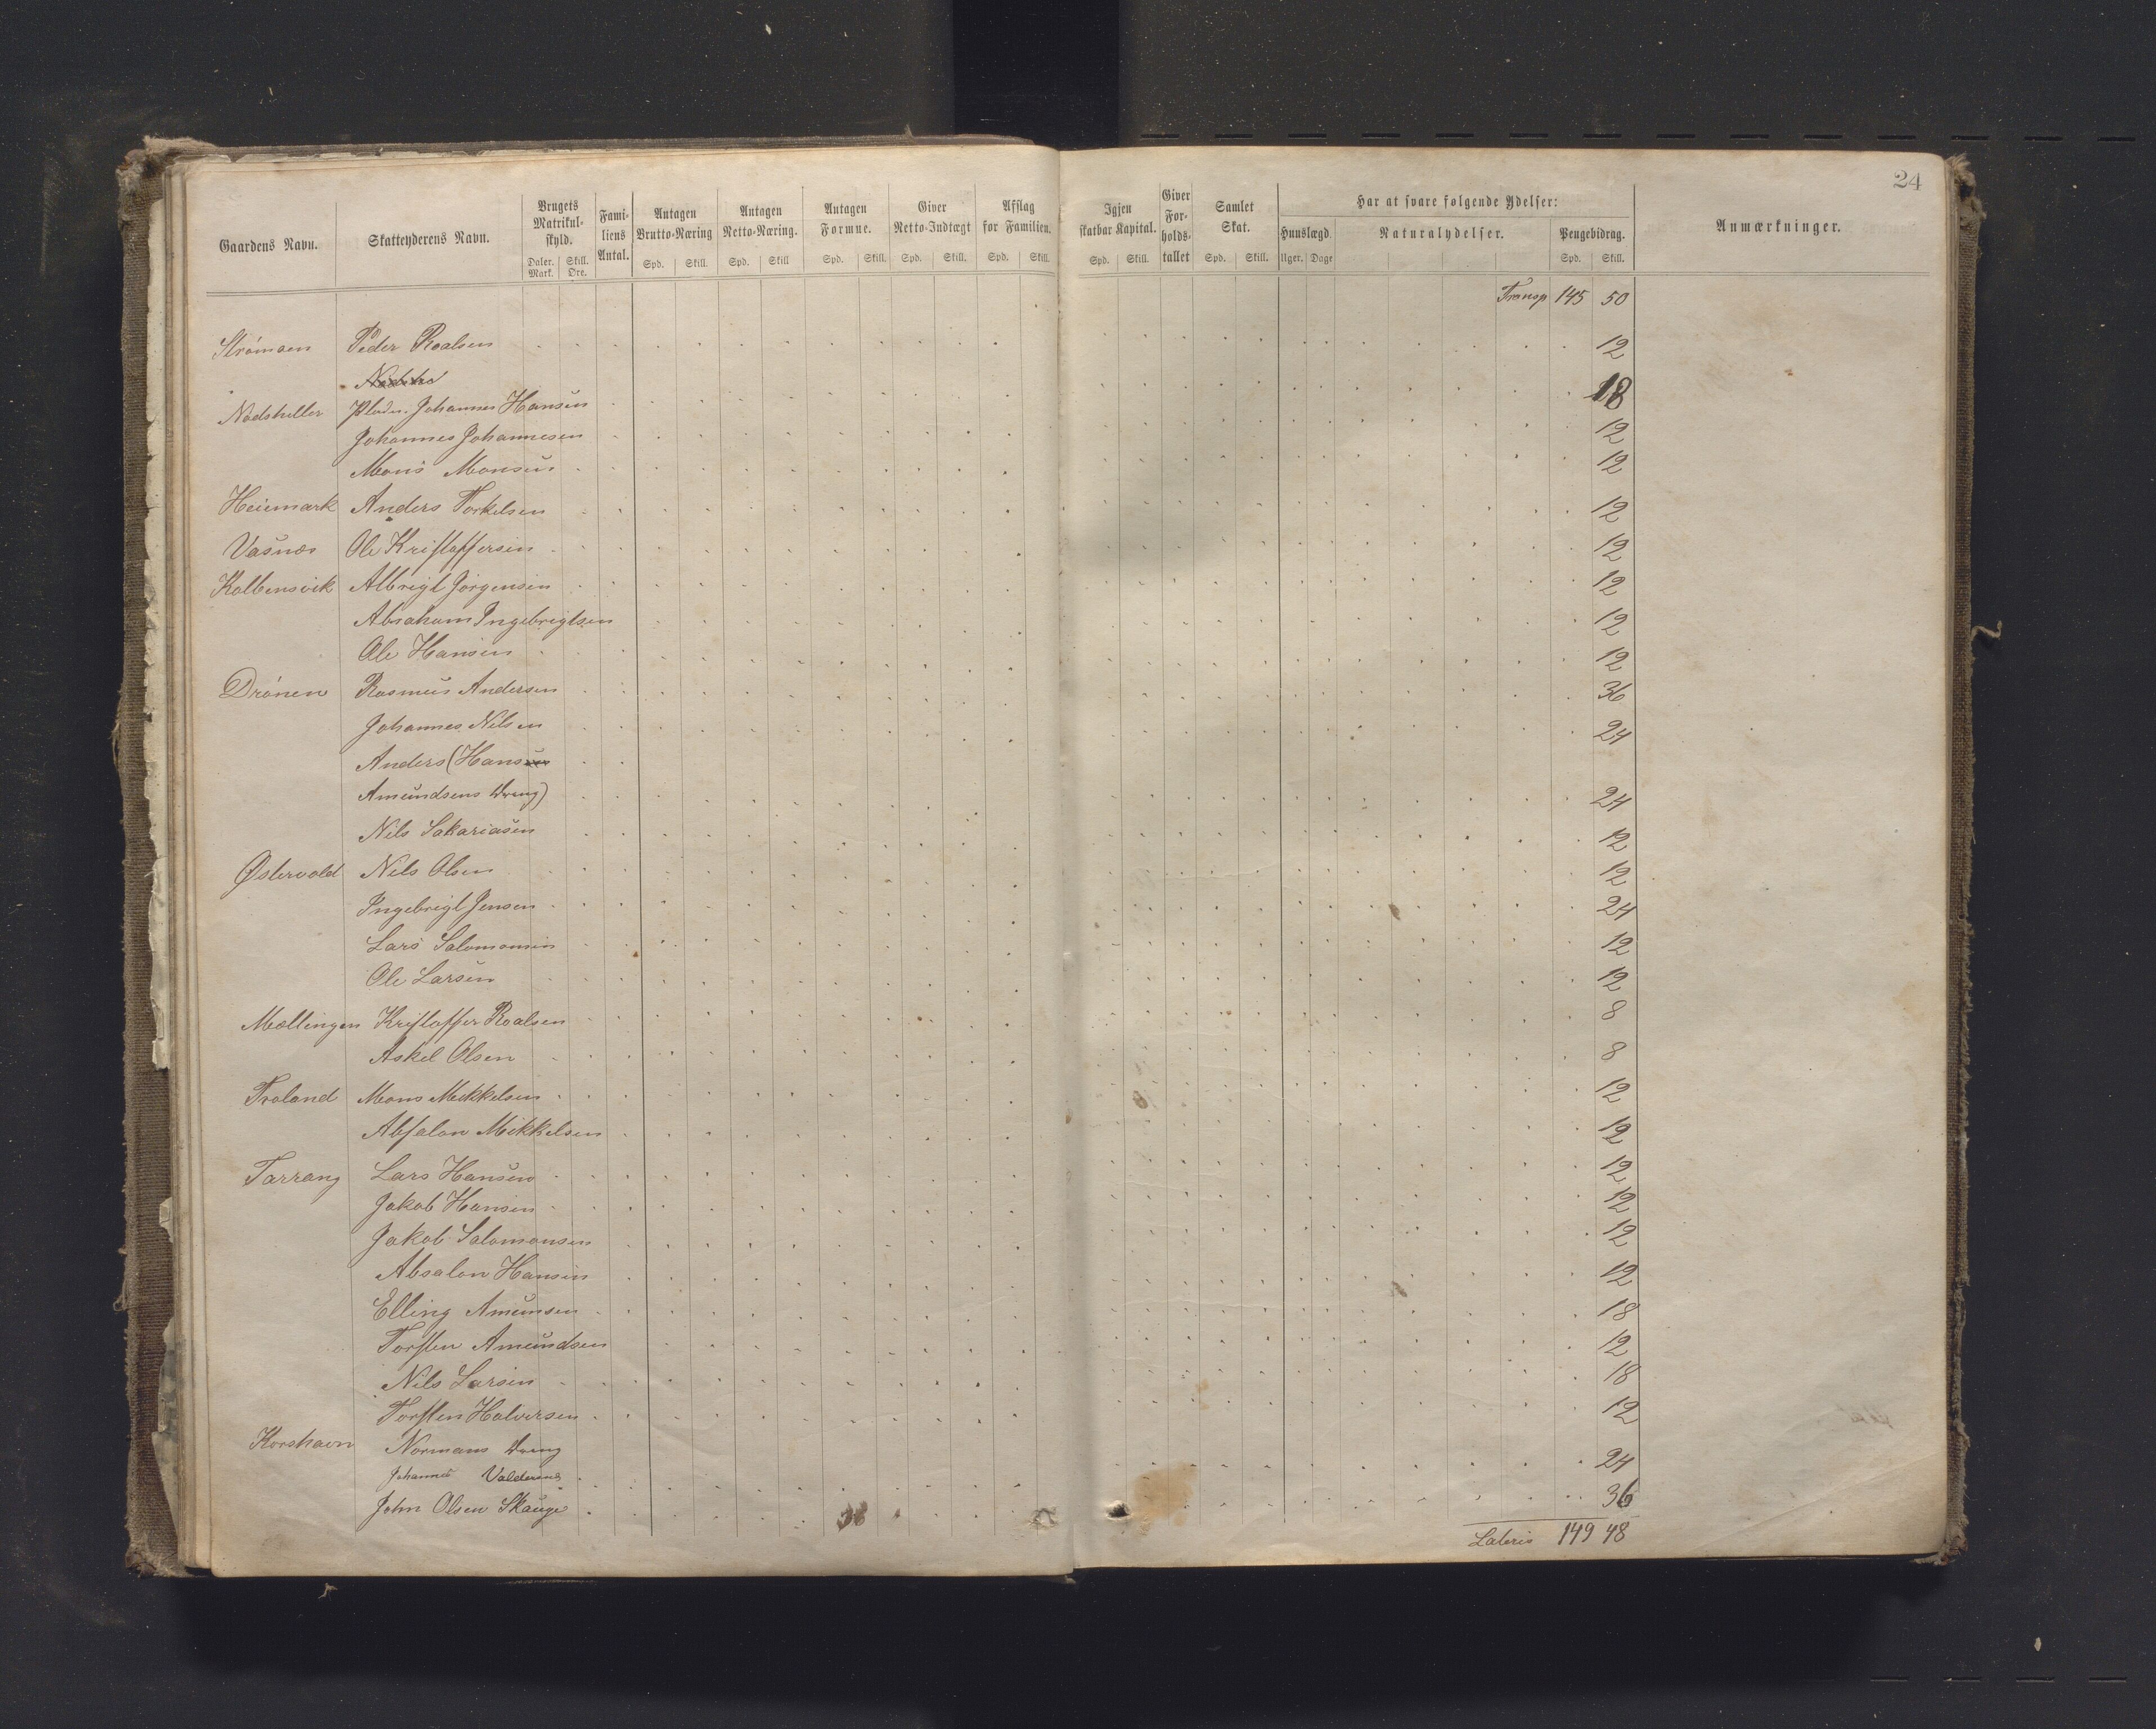 24
Gaardens Navn. Skatteyderens Navn. Brugets Matrikul-skyld. Fami-liens Antal. Antagen Brutto-Næring Antagen Netto-Næring. Antagen Formue. Giver Netto-Indtægt Afslag for Familien. Igjen skatbar Kapital. Giver For-holds-tallet Samlet Skat. Har at svare følgende Ydelser: Anmærkninger.
Huuslægd Naturalydelser. Pengebidrag.
Daler. Mark. Skill. Øre. Spd. Skill. Spd. Skill Spd. Skill. Spd. Skill. Spd. Skill. Spd. Skill. Spd. Skill. Uger. Dage Spd. Skill.
Transp 145 50
Strømøen Peder Roalsen 12
Nodsheller Johannes Hansen 18
Johannes Johannesen 12
Mons Monsen 12
Heiemark Anders Torkelsen 12
Vasnæs Ole Kristoffersen 12
Kolbensvik Albrigt Jørgensen 12
Abraham Ingebrigtsen 12
Ole Hansen 12
Drønen Rasmus Andersen 36
Johannes Nilsen 24
Anders (Hansen
Amundsens Dreng) 24
Nils Sakariasen 12
Østervold Nils Olsen 12
Ingebrigt Jensen 24
Lars Salomonsen 12
Ole Larsen 12
Mællingen Kristoffer Roalsen 8
Askel Olsen 8
Troland Mons Mikkelsen 12
Absalon Mikkelsen 12
Tarrang Lars Hansen 12
Jakob Hansen 12
Jakob Salomonsen 12
Absalon Hansen 12
Elling Amunsen 18
Torsten Amundsen 12
Nils Larsen 18
Torsten Halversen 12
Korshavn Normans Dreng
Johannes 24
John Olsen Skauge 36
Lateris 149 48